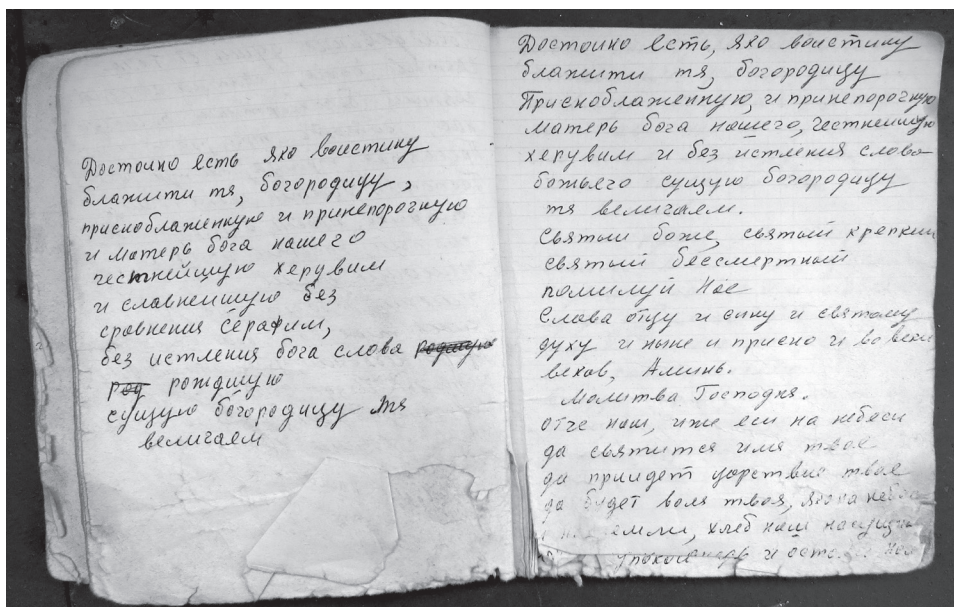 Достоино есть яко воистину
блажити тя, богородицу,
присноблаженную и принепорочную
и матерь бога нашего
честнейшую херувим
и славнейшую без
сравнения Серафим,
без истления бога слова родшую
род рождшую
сущую богородицу тя
величаем
Достоино есть, яко воистину
блажити тя, богородицу
Присноблаженную, и принепорочную
матерь бога нашего, честнейшую
херувим и без истления слова
божьего сущую богородицу
тя величаем.
Святый боже, святый крепкий
святый бессмертный
помилуй нас
Слава отцу и сину и святому
духу и ныне и присно и во веки
веков, Аминь.
Молитва Господня.
отче наш, иже еси на небеси
да святится имя твое
да приидет царствие твое
да будет воля твоя, яко на
емли, хлеб наш насущны
и